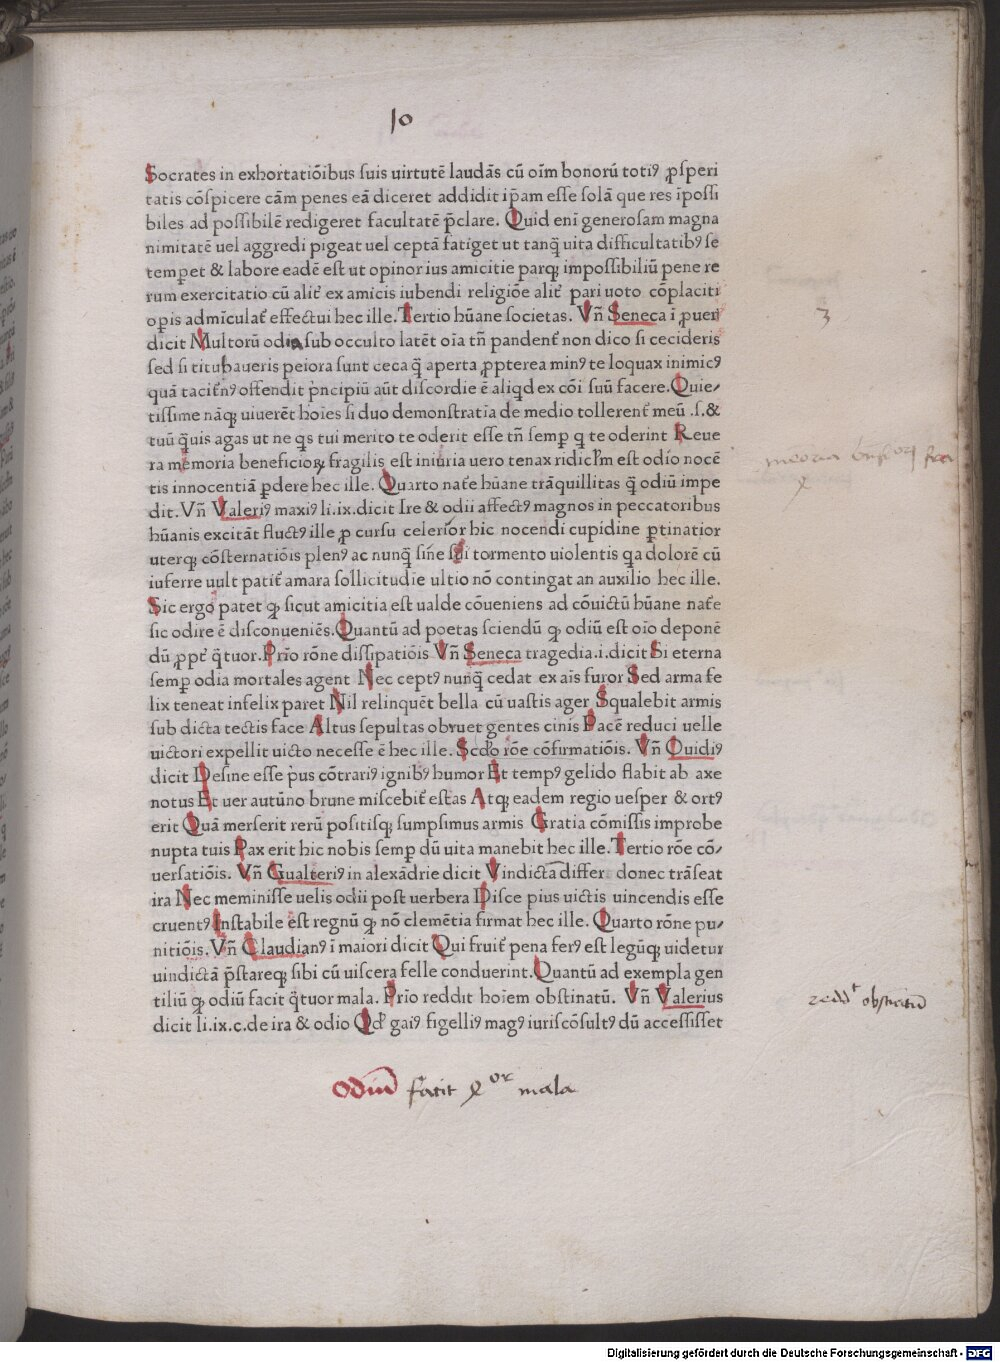 10
Socrates in exhortatiōibus suis uirtutē laudās cū oīm bonorū totiꝰ ꝓsperi
tatis cōspicere cām penes eā diceret addidit ip̄am esse solā que res īpossi
biles ad possibilē redigeret facultatē p̄clare. Quid enī generosam magna
nimitatē uel aggredi pigeat uel ceptā fatiget ut tanq̄ uita difficultatibꝰ se
temꝑet & labore eadē est ut opinor ius amicitie parqꝫ impossibiliū pene re
rum exercitatio cū alit̄ ex amicis iubendi religiōe alit̄ pari uoto cōplaciti
oꝑis admīculat̄ effectui hec ille. Tertio hūane societas. Vn̄ Seneca ī ꝓuerƀ
dicit Multorū odia sub occulto latēt oīa tn̄ pandent̄ non dico si cecideris
sed si titubaueris peiora sunt ceca q̄ aperta ꝓpterea minꝰ te loquax inimicꝰ
quā tacit̄nꝰ offendit p̄ncipiū aūt discordie ē aliqd ex cōi suū facere. Quie/
tissime nāqꝫ uiuerēt hoīes si duo demonstratia de medio tollerent̄ meū .s. &
tuū q̄uis agas ut ne qs tui merito te oderit esse tn̄ semꝑ q te oderint Reue
ra memoria beneficioꝝ fragilis est iniuria uero tenax ridicl̄m est odio nocē
tis innocentiā ꝑdere hec ille. Quarto nat̄e hūane trāquillitas q̄ odiū impe
dit. Vn̄ Valeriꝰ maxiꝰ li.ix. dicit Ire & odii affectꝰ magnos in peccatoribus
hūanis excitāt fluctꝰ ille ꝓ cursu celerior hic nocendi cupidine ꝑtinatior
uterqꝫ cōsternatiōis plenꝰ ac nunq̄ sine sui tormento uiolentis qa dolorē cū
iuferre uult patit̄ amara sollicitudie ultio nō contingat an auxilio hec ille.
Sic ergo patet ꝙ sicut amicitia est ualde cōueniens ad cōuictū hūane nat̄e
sic odire ē discōueniēs. Quantū ad poetas sciendū ꝙ odiū est oīo deponē
dū ꝓpt̄ q̄tuor. Prīo rōne dissipatiōis Vn̄ Seneca tragedia.i. dicit Si eterna
semꝑ odia mortales agent Nec ceptꝰ nunq̄ cedat ex ais furor Sed arma fe
lix teneat infelix paret Nil relinquēt bella cū uastis ager Squalebit armis
sub dicta tectis face Altus sepultas obruet gentes cinis Pacē reduci uelle
uictori expellit uicto necesse ē hec ille. Scďo rōe cōfirmatiōis. Vn̄ Ouidiꝰ
dicit Desine esse p̄us cōtrariꝰ ignibꝰ humor Et tempꝰ gelido flabit ab axe
notus Et uer autūno brune miscebit̄ estas Atqꝫ eadem regio uesper & ortꝰ
erit Quā merserit rerū positisqꝫ sumpsimus armis Gratia cōmissis improbe
nupta tuis Pax erit hic nobis semꝑ dū uita manebit hec ille. Tertio rōe cō/
uersatiōis. Vn̄ Gualteriꝰ in alexādrie dicit Vindictā differ donec trāseat
ira Nec meminisse uelis odii post uerbera Disce pius uictis uincendis esse
cruentꝰ Instabile est regnū ꝙ nō clemētia firmat hec ille. Quarto rōne pu/
nitiōis. Vn̄ Claudianꝰ ī maiori dicit Qui fruit̄ pena ferꝰ est legūqꝫ uidetur
uindictā p̄stareqꝫ sibi cū uiscera felle conduerint. Quantū ad exempla gen
tiliū ꝙ odiū facit q̄tuor mala. Prīo reddit hoīem obstinatū. Vn̄ Valerius
dicit li.ix.c.de ira & odio Qď gaiꝰ figelliꝰ magꝰ iuriscōsultꝰ dū accessisset
3
redd't obstinatū
odiū facit 4or mala
Digitalisierung gefördert durch die Deutsche Forschungsgemeinschaft - DFG